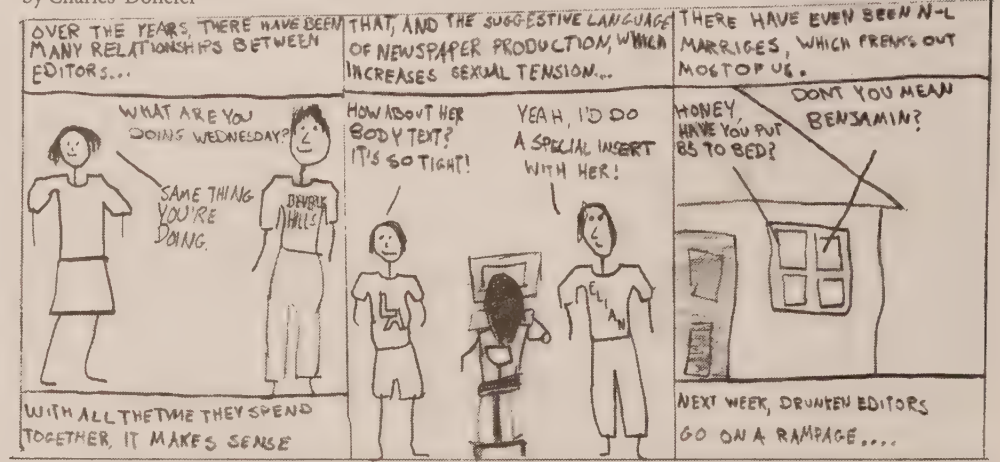 by Charles Doneler
OVER THE YEARS, THERE HAVE BEEN
MANY RELATIONSHIPS BETWEEN
EDITORS...
WHAT ARE YOU
DOING WEDNESDAY?
SAME THING
YOU'RE
DOING.
BEVERLY
HILLS
WITH ALL THE TIME THEY SPEND
TOGETHER, IT MAKES SENSE
THAT, AND THE SUGGESTIVE LANGUAGE
OF NEWSPAPER PRODUCTION, WHICH
INCREASES SEXUAL TENSION...
HOW ABOUT HER
BODY TEXT?
IT'S SO TIGHT!
YEAH, I'D DO
A SPECIAL INSERT
WITH HER!
LA
ELIAN
THERE HAVE EVEN BEEN N-L
MARRIGES, WHICH FREAKS OUT
MOST OF US.
HONEY,
HAVE YOU PUT
BS TO BED?
DONT YOU MEAN
BENJAMIN?
NEXT WEEK, DRUNKEN EDITORS
GO ON A RAMPAGE....